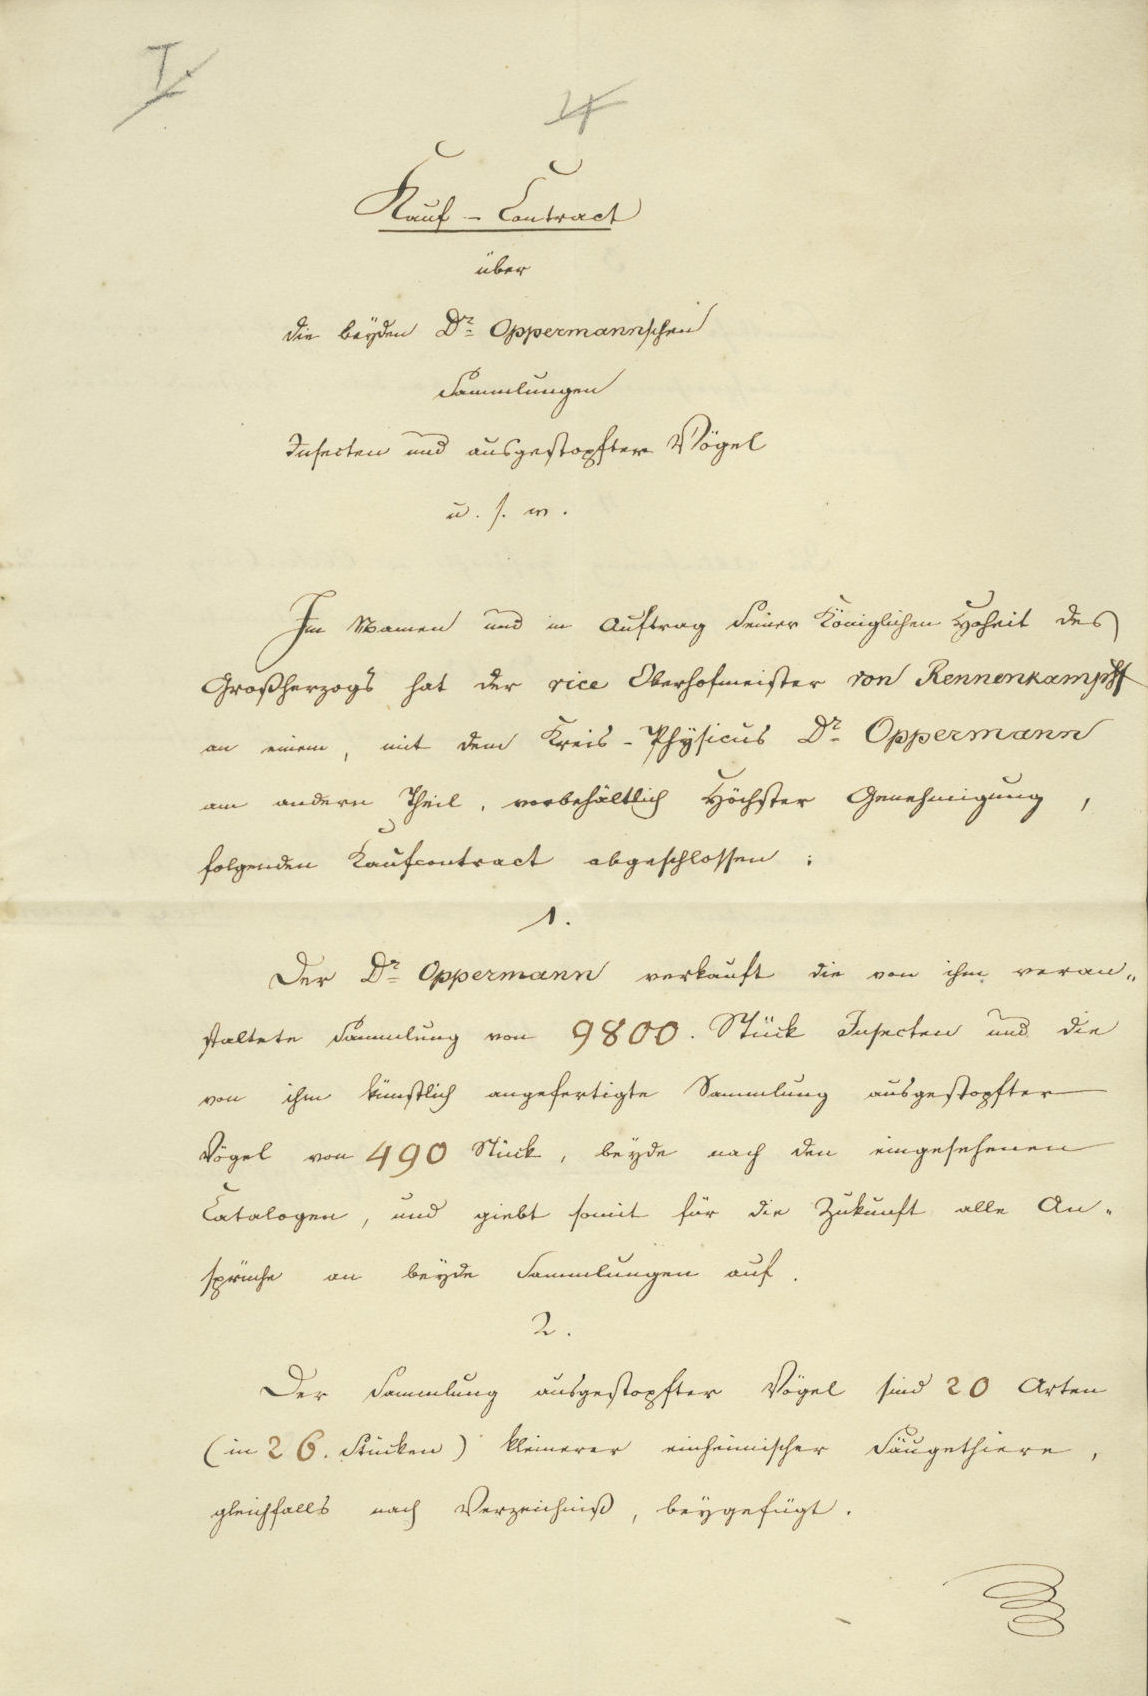 I.
4
Kauf - Contract
über
die beÿden Dr. Oppermannschen
Sammlungen
Insecten und ausgestopfter Vögel
u. s. w.
Im Namen und in Auftrag Seiner Königlichen Hoheit des
Großherzogs hat der vice Oberhofmeister von Rennenkampff
an einem, mit dem Kreis-Phÿsicus Dr. Oppermann
am andern Theil, vorbehältlich Höchster Genehmigung,
folgenden Kaufcontract abgeschlossen:
1.
Der Dr. Oppermann verkauft die von ihm veran„
staltete Sammlung von 9800. Stück Insecten und die
von ihm künstlich angefertigte Sammlung ausgestopfter
Vögel von 490 Stück, beÿde nach den eingesehenen
Catalogen, und giebt somit für die Zukunft alle An„
sprüche an beÿde Sammlungen auf.
2.
Der Sammlung ausgestopfter Vögel sind 20 Arten
(in 26. Stücken) kleinerer einheimischer Säugethiere,
gleichfalls nach Verzeichniß, beÿgefügt.